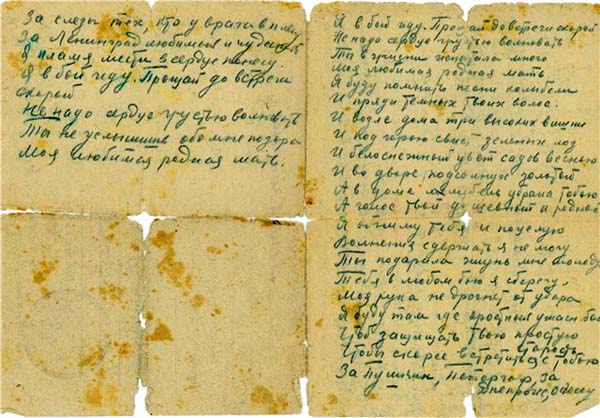 За слезы тех, кто у врага в плену
За Ленинград любимый и чудесный
Я пламя мести в сердце понесу.
Я в бой иду. Прощай до встречи
скорой
Не надо сердце грустью волновать
Ты не услышишь обо мне позора
Моя любимая родная мать.
Я в бой иду. Прощай до встречи скорой
Не надо сердце грустью волновать
Ты в жизни испытала много
Моя любимая родная мать
Я буду помнить песни колыбели
И пряди темных твоих волос.
И возле дома три высоких вишни
И под горою свист зеленых лоз
И белоснежный цвет садов весною
И во дворе подсолнух золотой
А в доме мебель убрана тобою
А голос твой душевный и родной
Я обниму тебя и поцелую
Волнения сдержать я не могу
Ты подарила жизнь мне молодую
Тебя в любом бою я сберегу.
Моя рука не дрогнет от удара
Я буду там где яростный ужасн. бой
Чтоб защищать твою простую
старость
Чтобы скорее встретиться с тобою
За Пушкин, Петергоф, за
Днепрогэс, Одессу